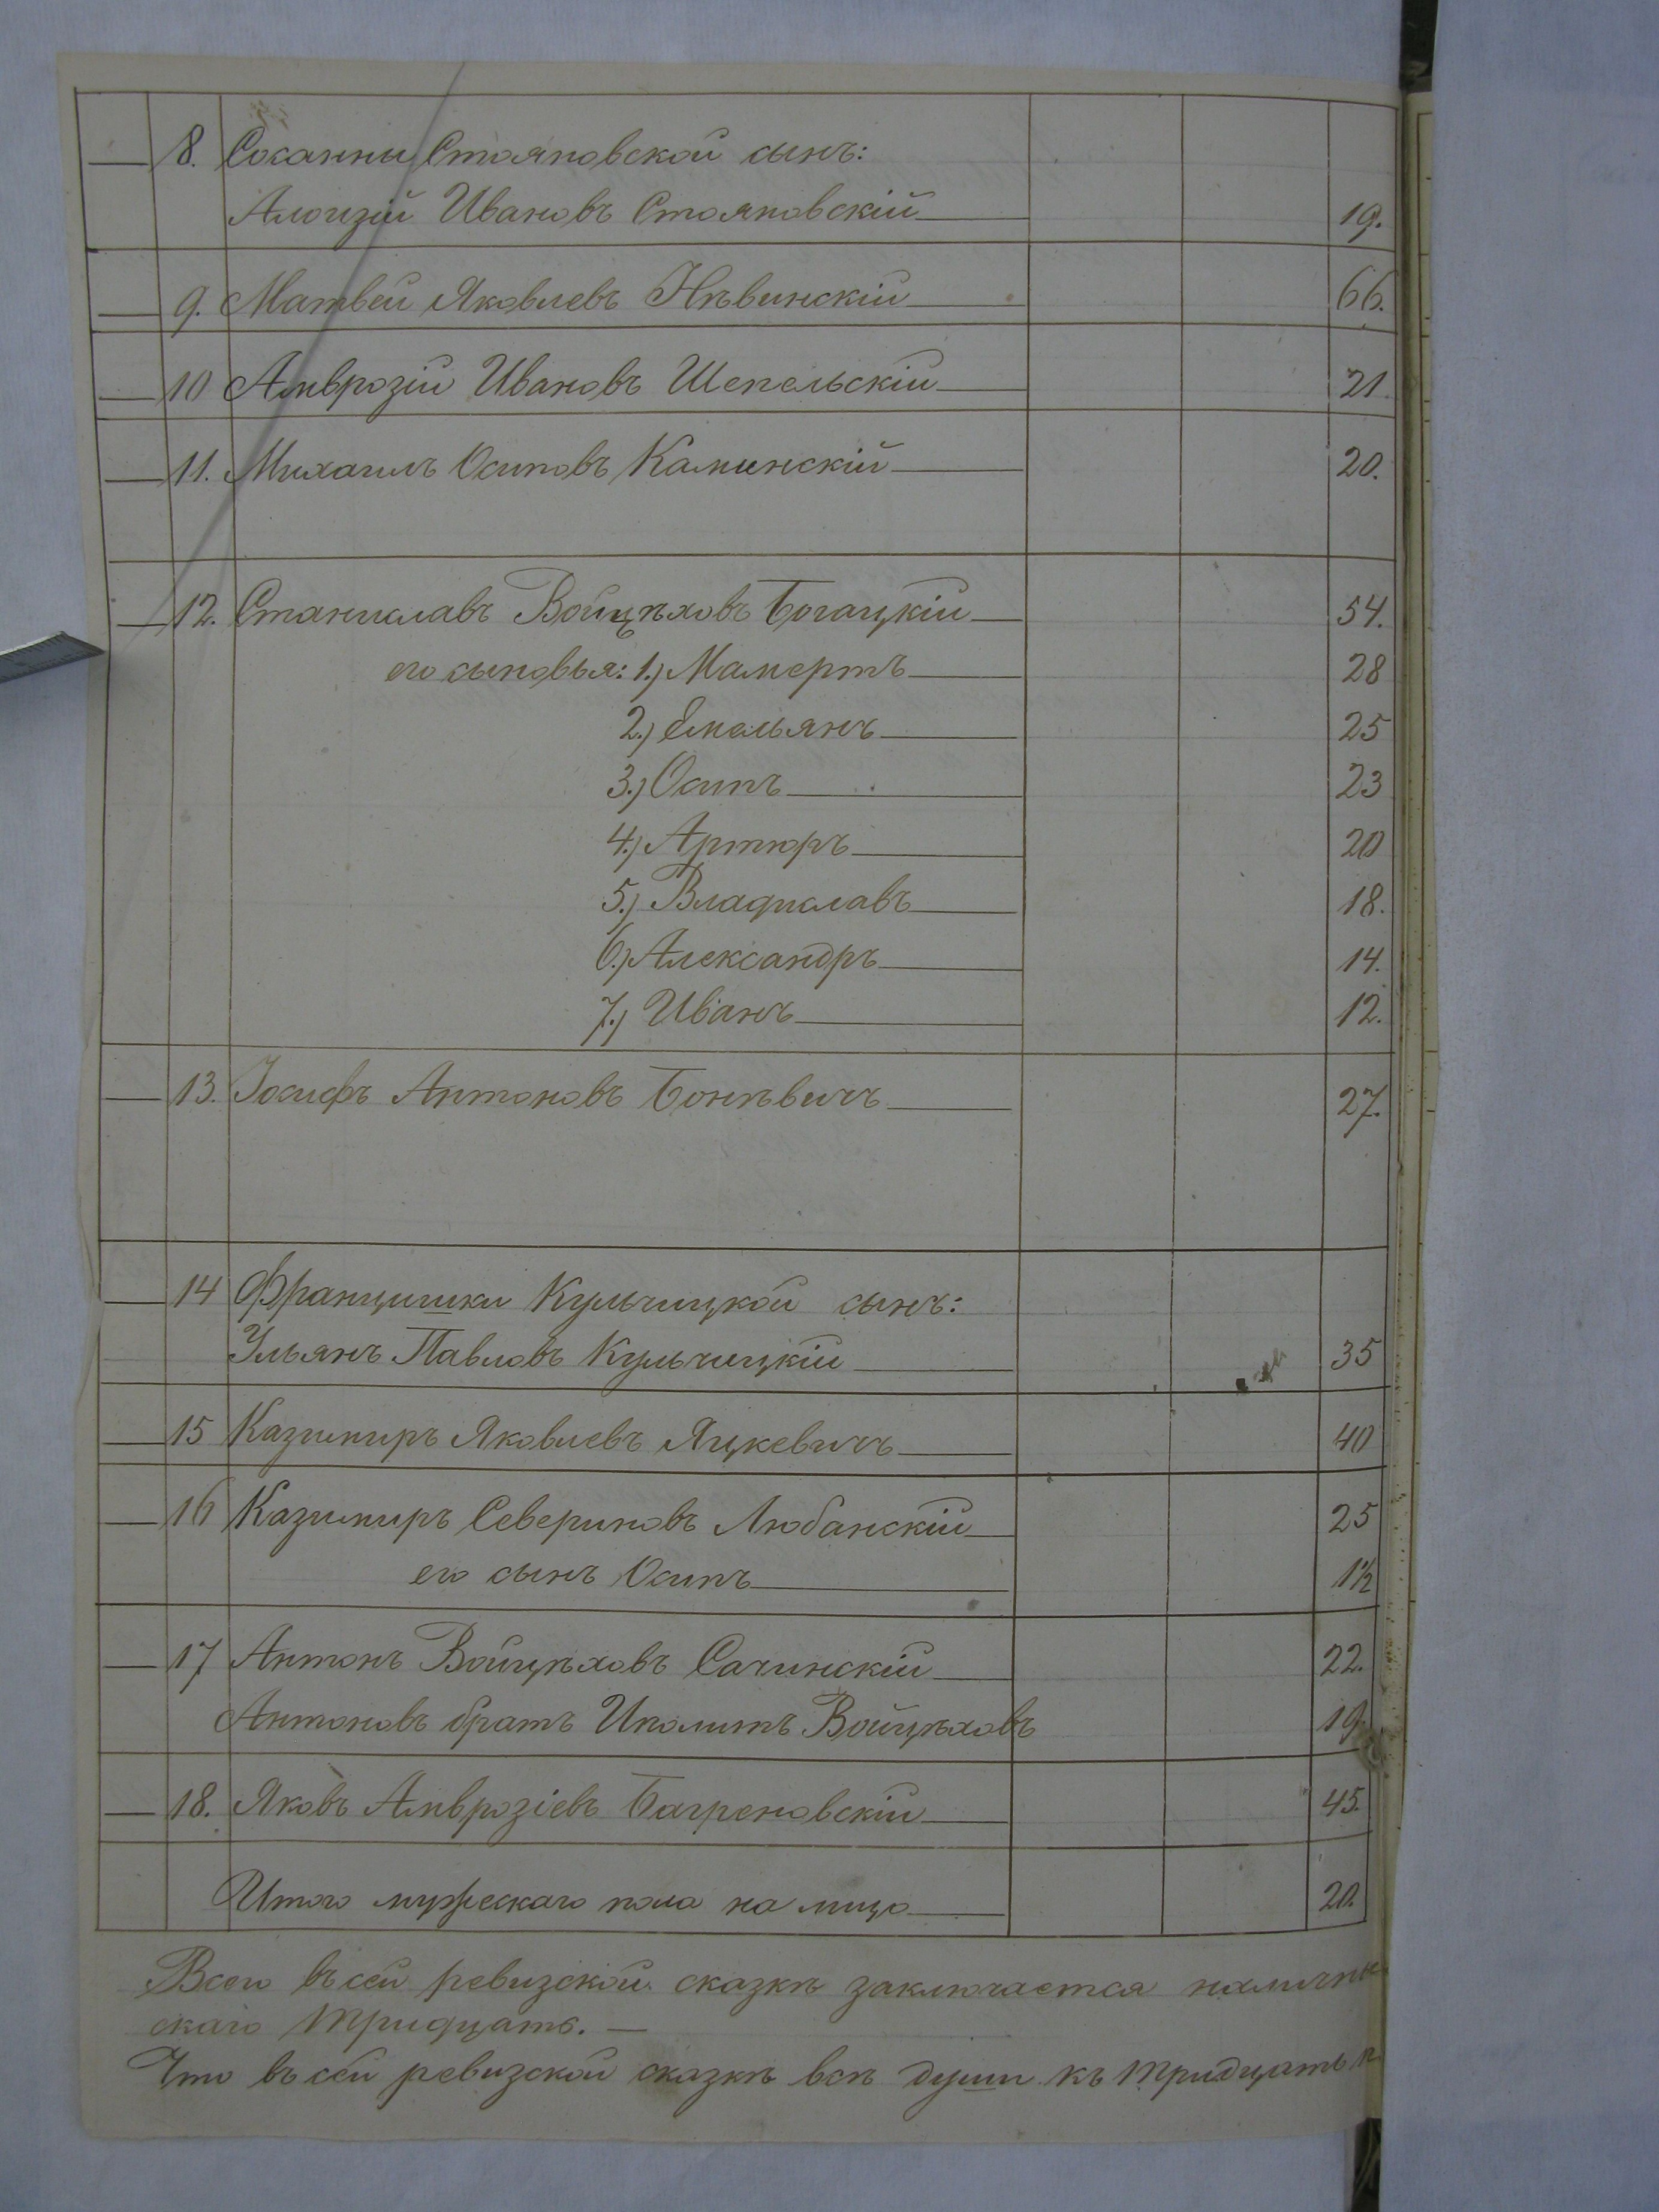 8. Сосанны Стояновской сынъ:
Алоизій Ивановъ Стояновскій 19.
9. Матвей Яковлевъ Нѣвинскій 66.
10 Амврозій Ивановъ Шепельскій 21
11. Михаилъ Осиповъ Каминскій 20.
12. Станиславъ Войцѣховъ Богацкій 54.
его сыновья: 1.) Мамертъ 28
2.) Емельянъ 25
3.) Осипъ 23
4.) Артюръ 20
5.) Владиславъ 18.
6.) Александръ 14.
7.) Иванъ 12.
13. Іосифъ Антоновъ Бонѣвичъ 27.
14 Францишки Кульчицкой сынъ:
Ульянъ Павловъ Кульчицкій 35
15 Казимиръ Яковлевъ Яцкевичъ 40
16 Казимиръ Севериновъ Любанскій 25
его сынъ Осипъ 1½
17 Антонъ Войцѣховъ Сачинскій 22.
Антоновъ братъ Иполитъ Войцѣховъ 19
18. Яковъ Амврозіевъ Багреновскій 45.
Итого мужескаго пола на лицо 20.
Всего въ сей ревизской сказкѣ заключается наличны
скаго тридцать. —
Что въ сей ревизской сказкѣ всѣ души къ тридцать